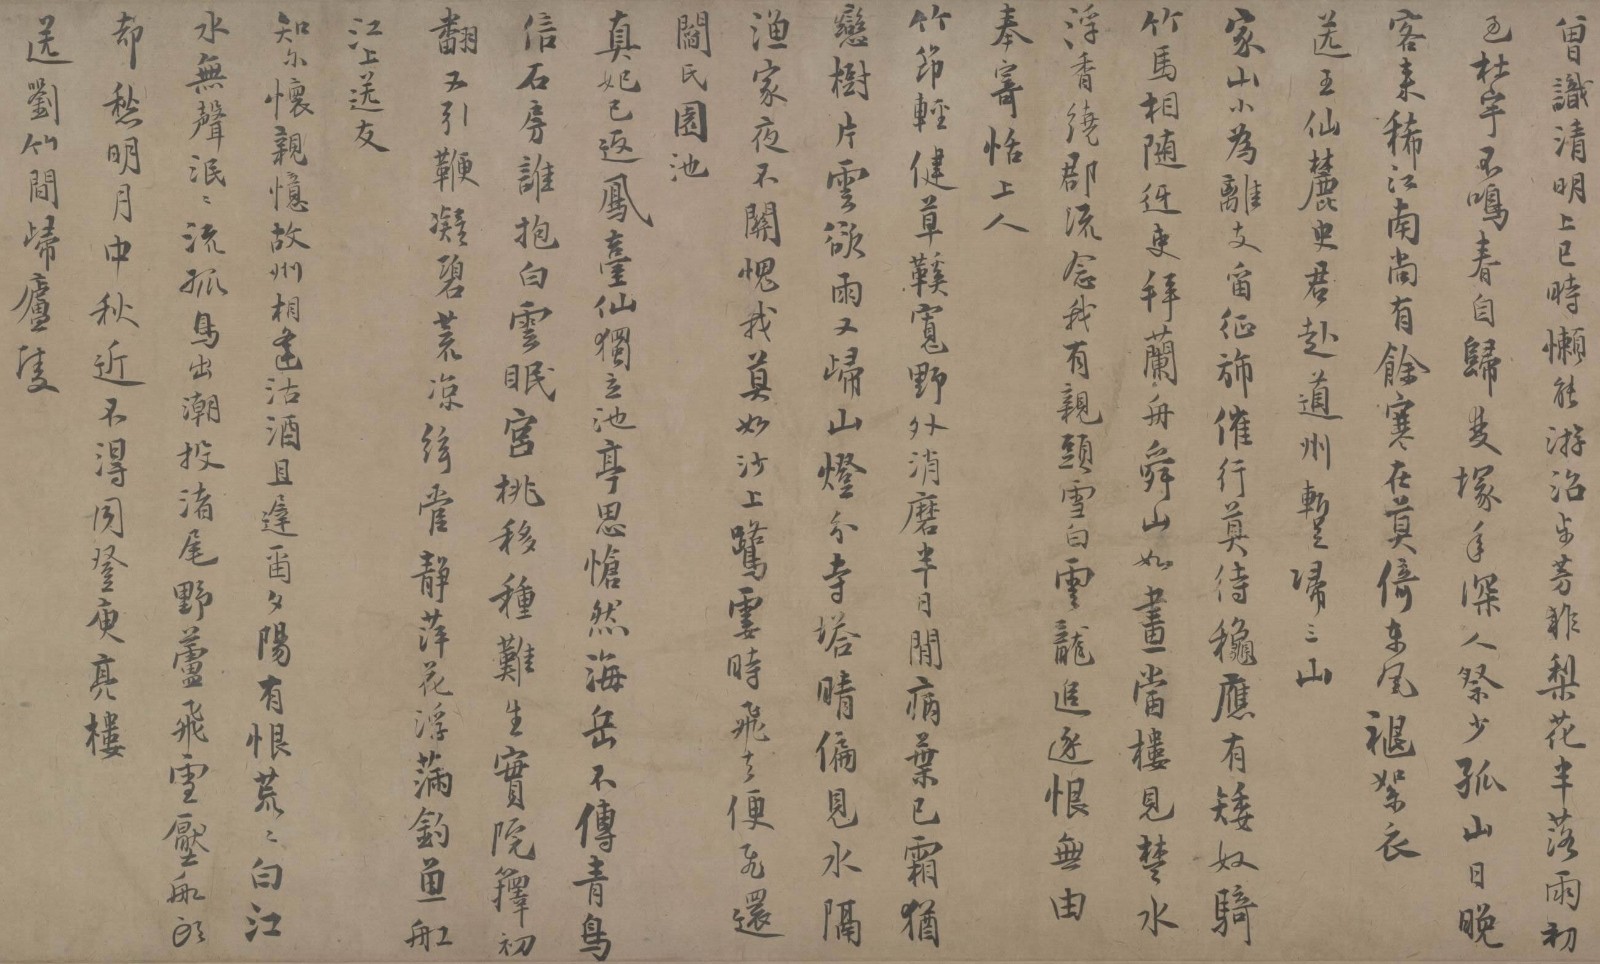 曽識清明上巳時懶能游冶步芳菲梨花半落雨初
過杜宇不鳴春自歸雙塚年深人祭少孤山日晚
客来稀江南尚有餘寒在莫倚東風褪絮衣
送王仙麓史君赴道州暫歸三山
家山小為離支留征旆催行莫待穐應有矮奴騎
竹馬相随迓吏拜蘭舟舜山如畫當樓見楚水
浮香繞郡流念我有親頭雪白雲龍追逐恨無由
奉寄恬上人
竹節輕健草鞵寬野外消磨半日閒病葉已霜猶
戀樹片雲欲雨又歸山燈分寺塔晴偏見水隔
漁家夜不關愧我莫如沙上鷺霎時飛去便飛還
閻氏園池
真妃已返鳳臺仙獨立池亭思愴然海岳不傳青鳥
信石房誰抱白雲眠宮桃移種難生實院籜初
翻又引鞭凝碧荒凉絃管静萍花浮滿釣魚舡
江上送友
知尔懷親憶故州相逢沽酒且遲留夕陽有恨荒〻白江
水無聲泯〻流孤鳥出潮投渚尾野蘆飛雪壓船頭
却愁明月中秋近不得同登庾亮樓
送劉竹間歸廬陵